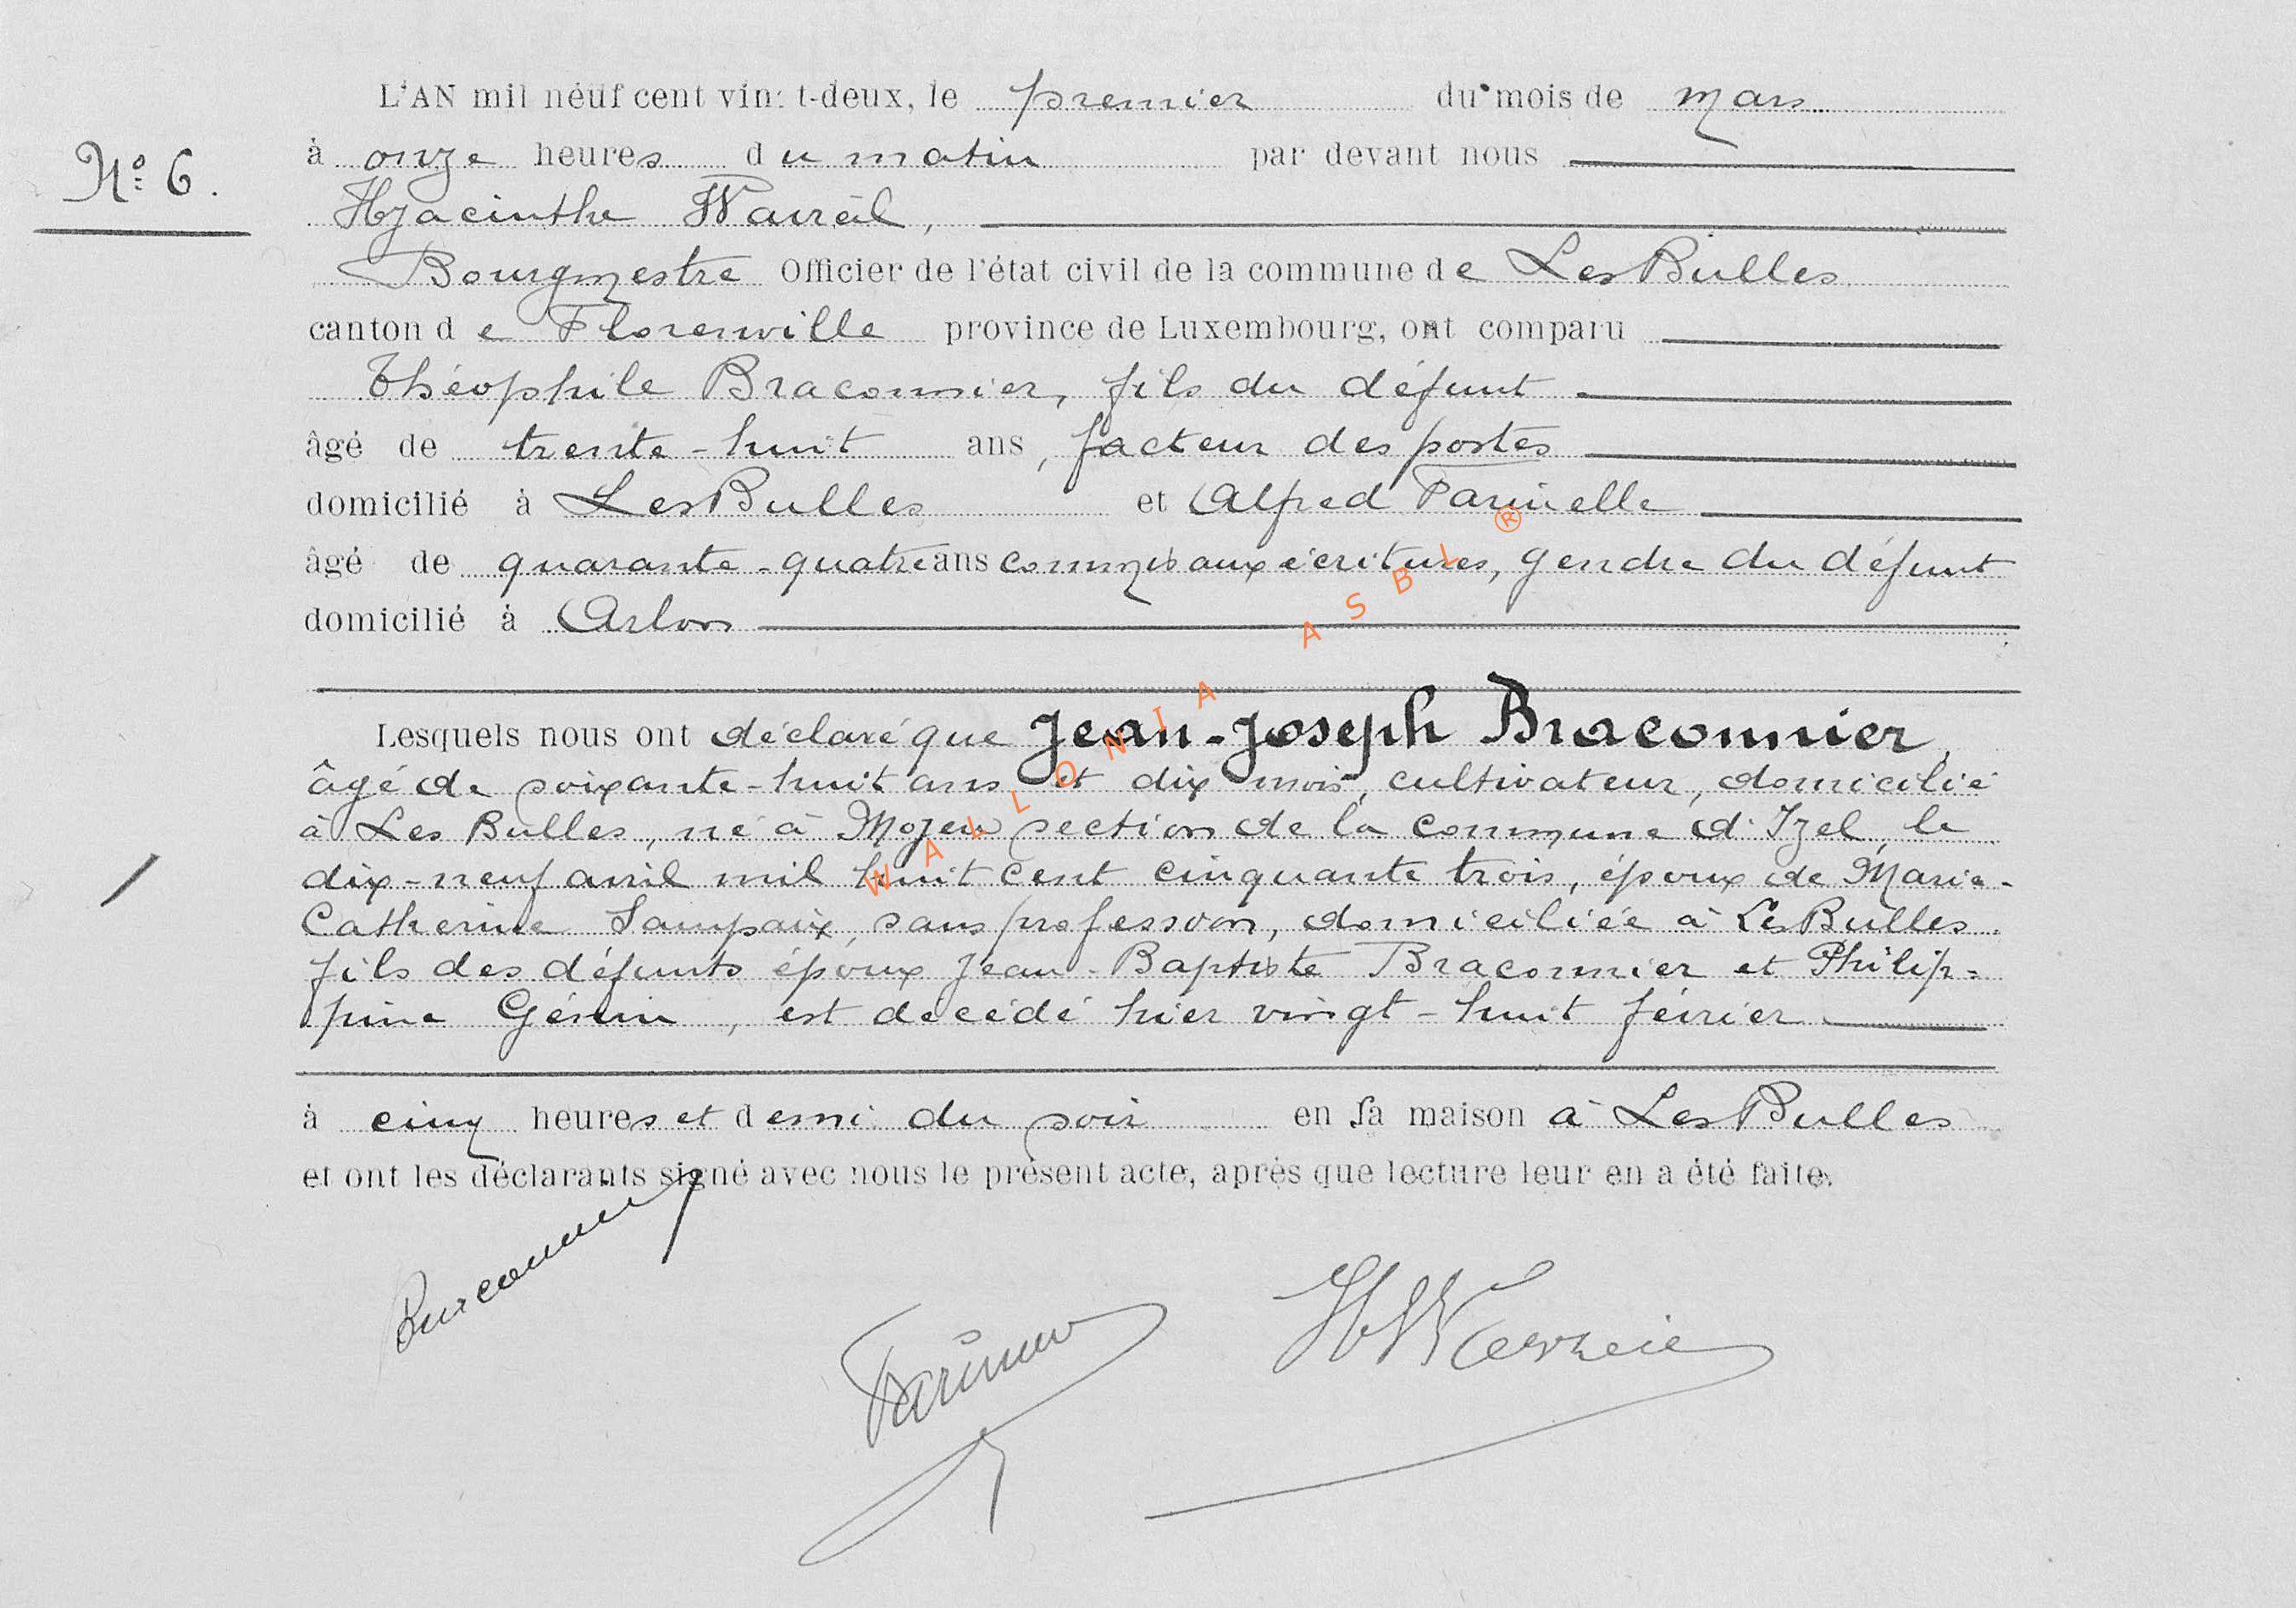 L'AN mil neuf cent vin t-deux, le premier du mois de Mars
N° 6.
à onze heures du matin par devant nous
Hyacinthe
Bourgmestre Officier de l'état civil de la commune de Les Bulles
canton de Florenville province de Luxembourg, ont comparu
Théophile Braconnier, fils du défunt
âgé de trente-huit ans, facteur des postes
domicilié à Les Bulles et Alfred Farinelle
âgé de quarante-quatre ans commis aux écritures, gendre du défunt
domicilié à Arlon
Lesquels nous ont déclaré que Jean-Joseph Braconnier,
âgé de soixante-huit ans et dix mois, cultivateur, domicilié
à Les Bulles, né à Moyen section de la commune d'Izel, le
dix-neuf avril mil huit cent cinquante trois, époux de Marie-
Catherine Lampaix, sans profession, domiciliée à Les Bulles
fils des défunts époux Jean-Baptiste Braconnier et Philip-
pine Génin, est décédé hier vingt-huit février
à cinq heures et demi du soir en sa maison à Les Bulles
et ont les déclarants signé avec nous le présent acte, après que lecture leur en a été faite.
Braconnier
WALLONIA ASBL ®